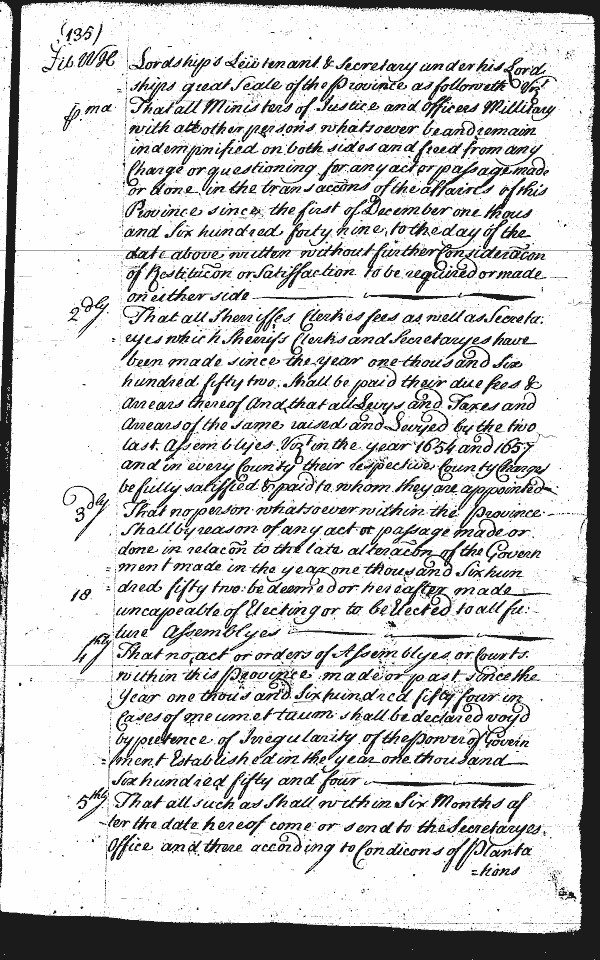 (135)
Lib WH Lordship's Leiutenant & Secretary under his Lord
ships great Seale of the Province as followeth Vizt
p. ma That all Ministers of Justice and officers Millitary
with all other persons whatsoever be and remain
indempnified on both sides and freed from any
Charge or questioning for any act or passage made
or done in the transaccons of the affaires of this
Province since the first of December one thous
and Six hundred forty nine to the day of the
date above written without further Consideracon
of Restitucon or Satisfaction to be required or made
on either side
2dly That all Sherriffes Clerkes fees as well as Secreta:
ryes which Sherrifs Clerks and Secretaryes have
been made since the year one thousand Six
hundred fifty two shall be paid their due fees &
Arrears thereof And that all Levys and Taxes and
Arrears of the same raised and Levyed by the two
last Assemblyes Vizt in the year 1654 and 1657
and in every County their respective County Charges
be fully satisfied & paid to whom they are appointed
3dly That no person whatsoever within the Province
Shall by reason of any act or passage made or
done in relacon to the late alteracon of the Govern
ment made in the year one thousand Six hun
18 dred fifty two be deemed or hereafter made
uncapeable of Electing or to be Elected to all fu:
ture Assemblyes
4thly That no act or orders of Assemblyes or Courts
within this Province made or past since the
Year one thousand Six hundred fifty four in
Cases of meum et tuum shall be declared voyd
by pretence of Irregularity of the power of Govern
ment Established in the year one thousand
Six hundred fifty and four
5thly That all such as Shall within Six Months af
ter the date hereof come or send to the Secretaryes
Office and there according to Condicons of Planta
=tions